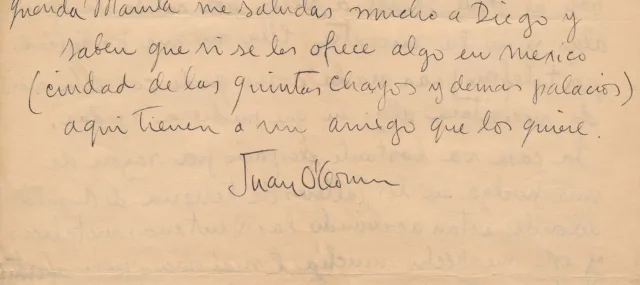 me saludas mucho a Diego y
saben que si se les ofrece algo en mexico
(ciudad de las quintas chayos y demas palacios)
aqui tienen a un amigo que los quiere.
Juan O'Gorman